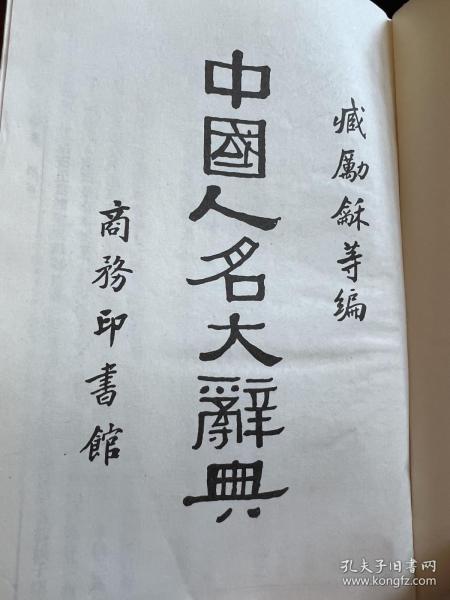 臧勵龢等编
中國人名大辭典
商務印書館
孔夫子旧书网
www.kongfz.com